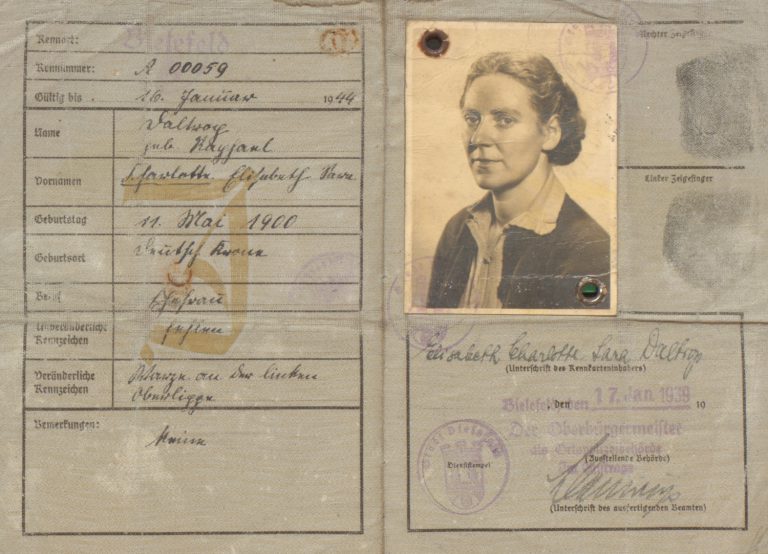 Kennort: Bielefeld
Kennummer: A 00059
Gültig bis 16. Januar 1944
Name
geb.
Vornamen Charlotte Elisabeth Sara
Geburtstag 11. Mai 1900
Geburtsort Deutsch Krone
Beruf Ehefrau
Unveränderliche Kennzeichen fehlen
Veränderliche Kennzeichen Warze an der linken Oberlippe
Bemerkungen:
Keine
J
Rechter Zeigefinger
Linker Zeigefinger
Elisabeth Charlotte Sara
(Unterschrift des Kennkarteninhabers)
Bielefeld, den 17. Jan. 1939 19
Der Oberbürgermeister
als Ortspolizeibehörde
Im Auftrage
(Ausstellende Behörde)
Dienststempel
(Unterschrift des ausfertigenden Beamten)